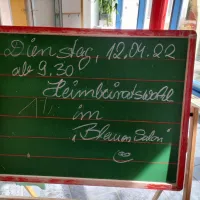 Dienstag, 12.04.22
ab 9.30
Heimbeiratswahl
im
"Blauen Salon"